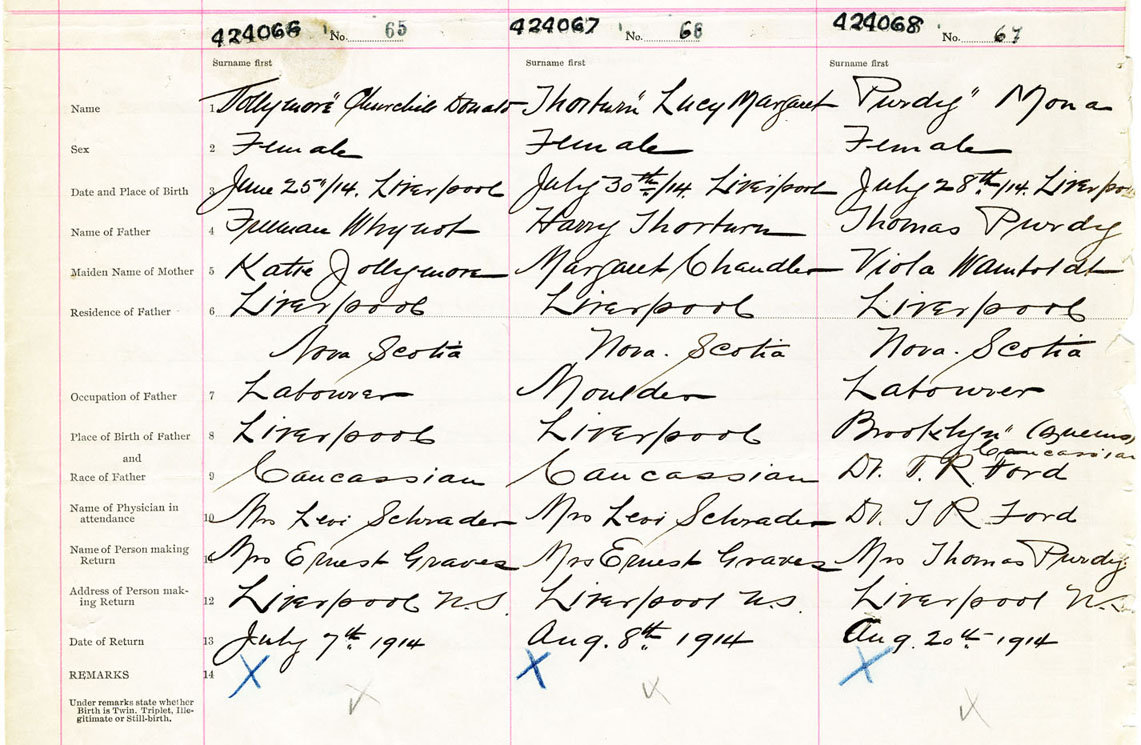 424066 No. 65 424067 No. 66 424068 No. 67
Surname first Surname first Surname first
Name 1 Jollymore" Churchill Donald Thorburn" Lucy Margaret Purdy" Mona
Sex 2 Female Female Female
Date and Place of Birth 3 June 25"/14. Liverpool July 30th/14. Liverpool July 28th/14. Liverpoo
Name of Father 4 Freeman Whynot Harry Thorburn Thomas Purdy
Maiden Name of Mother 5 Katie Jollymore Margaret Chandler Viola Wamboldt
Residence of Father 6 Liverpool Liverpool Liverpool
Nova Scotia Nova. Scotia Nova. Scotia
Occupation of Father 7 Labourer Moulder Labourer
Place of Birth of Father 8 Liverpool Liverpool Brooklyn" (Queens)
and Caucassian
Race of Father 9 Caucassian Caucassian Dr. T. R. Ford
Name of Physician in
attendance 10 Mrs Levi Schrader Mrs Levi Schrader Dr. T R Ford
Name of Person making
Return 11 Mrs Ernest Graves Mrs Ernest Graves Mrs Thomas Purdy
Address of Person mak-
ing Return 12 Liverpool N.S. Liverpool N.S. Liverpool N.S.
Date of Return 13 July 7th 1914 Aug. 8th 1914 Aug. 20th 1914
REMARKS 14 X X X
Under remarks state whether
Birth is Twin, Triplet, Ille-
gitimate or Still-birth.